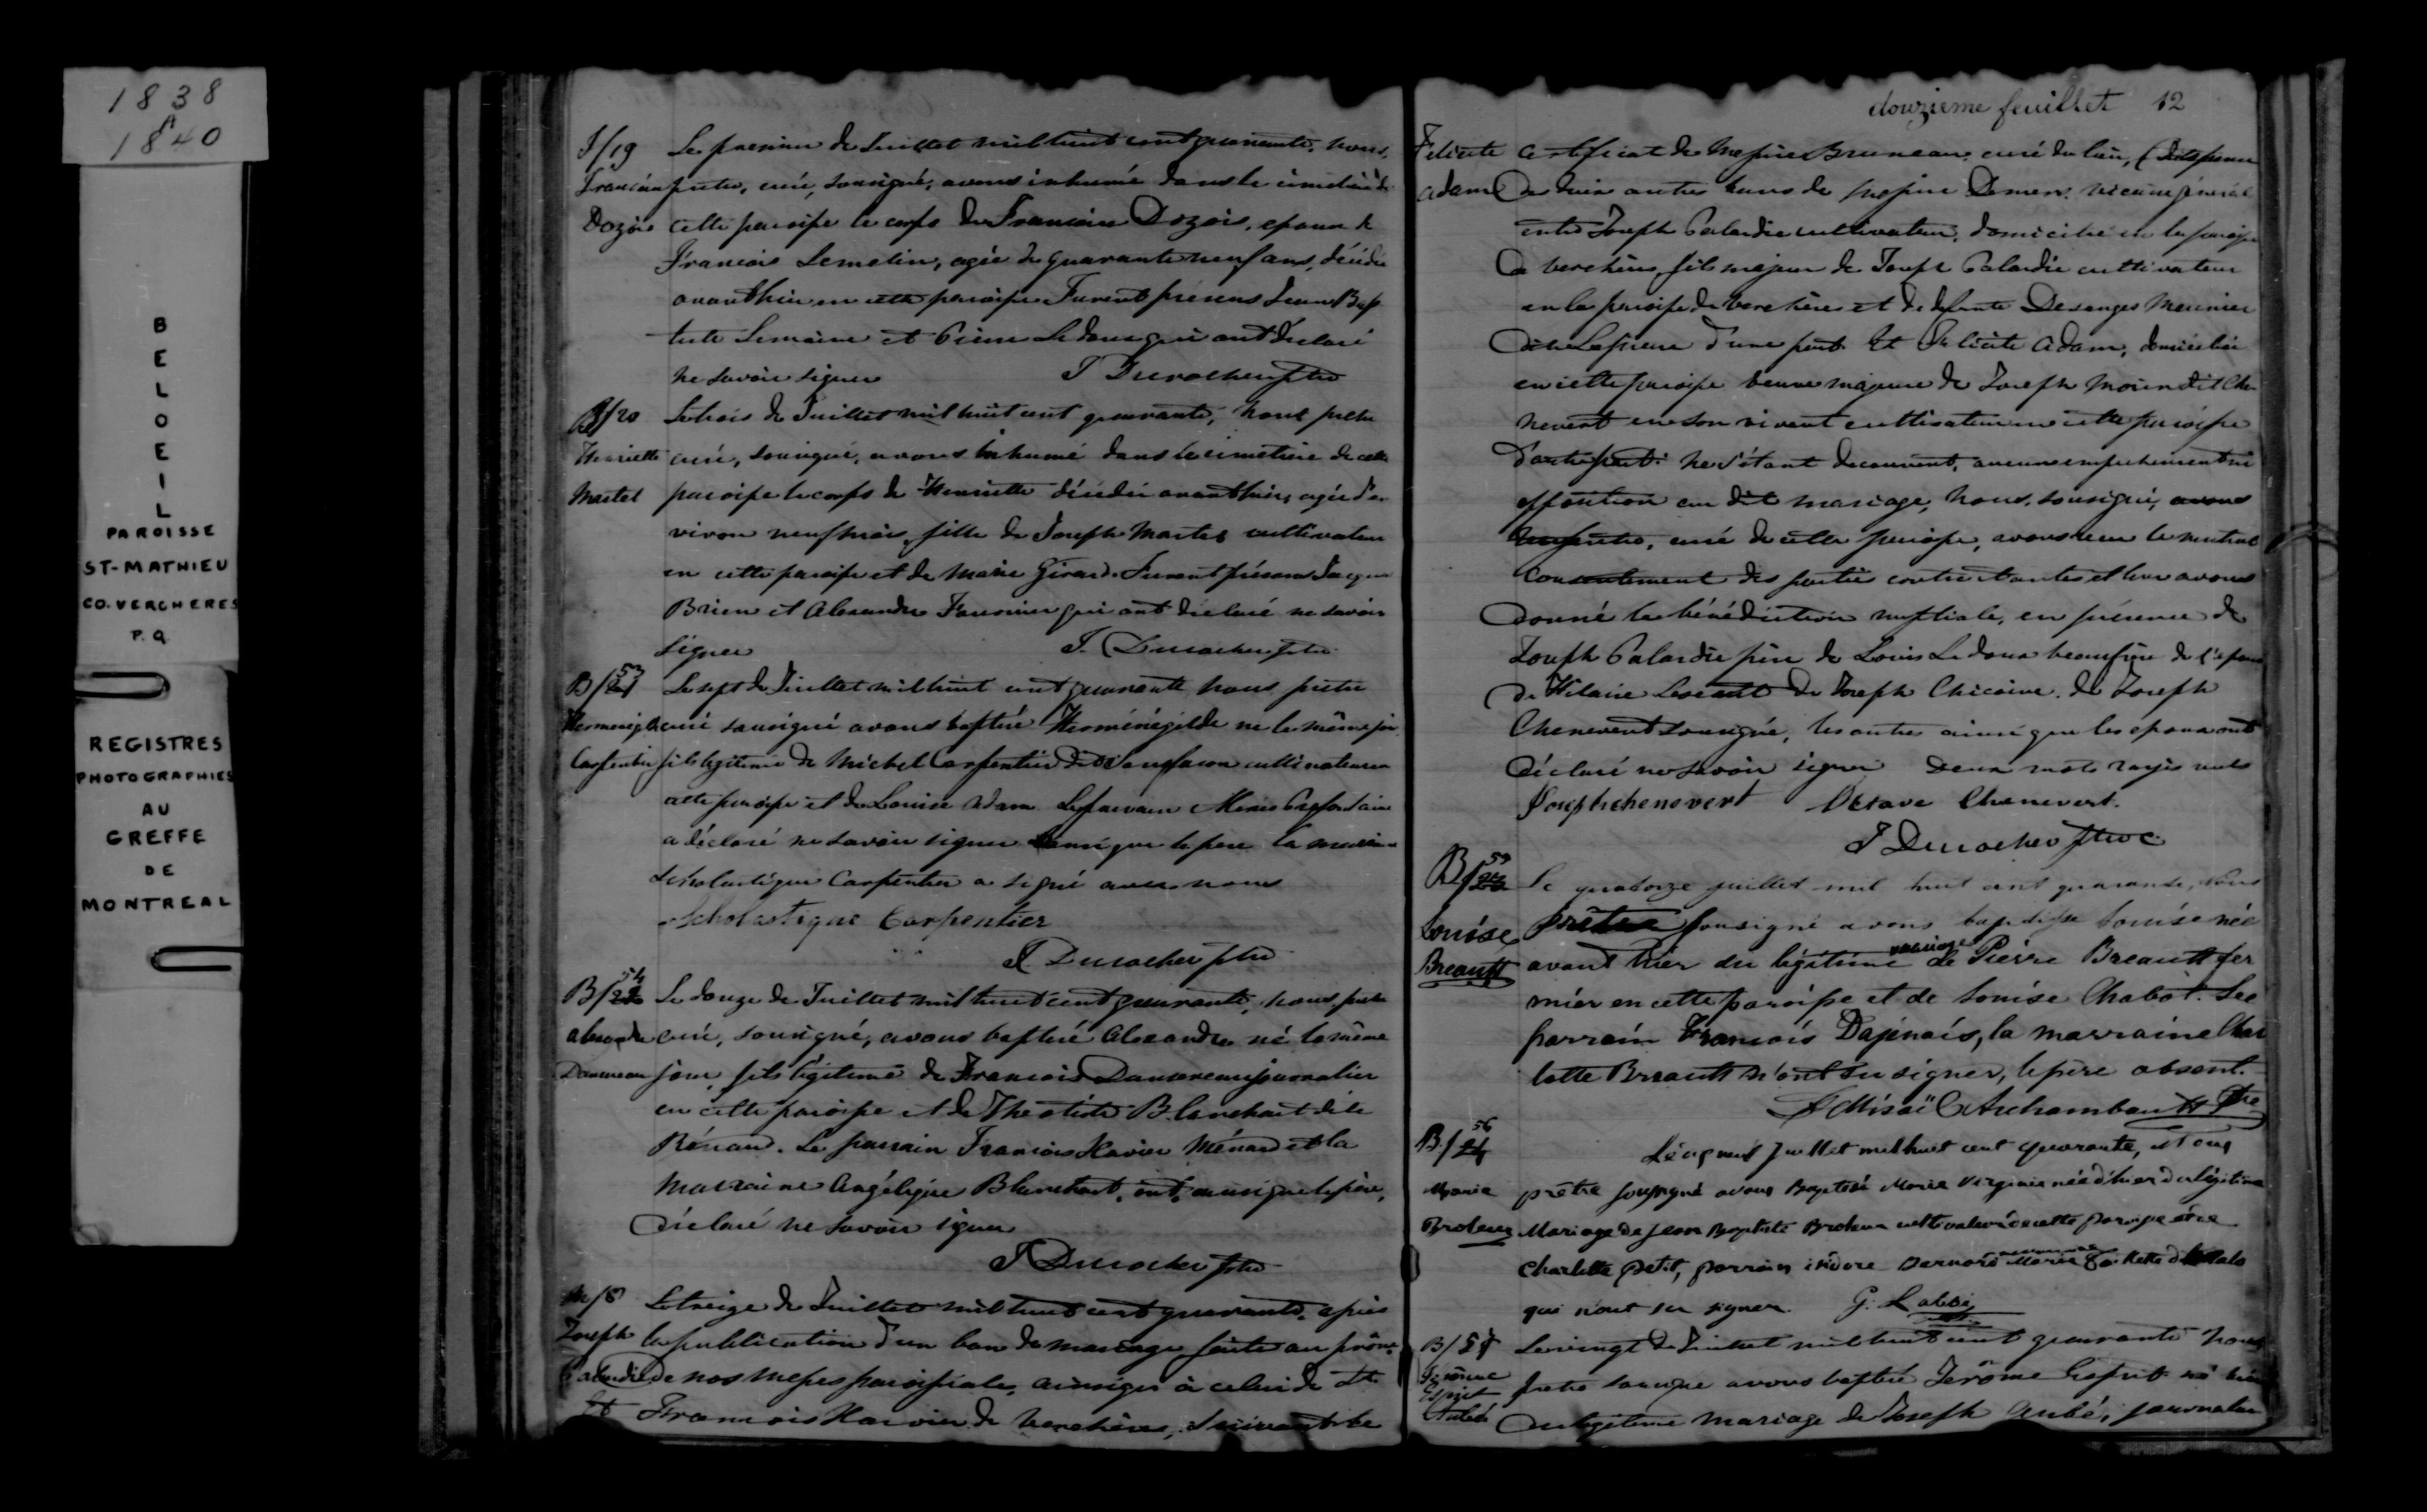 1838
A
1840
BELOEIL
PAROISSE
ST-MATHIEU
CO. VERCHERES
P.Q
REGISTRES
PHOTOGRAPHIES
AU
GREFFE
DE
MONTREAL
S/19 Le premier de Juillet mil huit cent quarante, nous,
prêtre, curé, soussigné, avons inhumé dans le cimetière de
Dozois cette paroisse le corps de Dozois, epouse de
François Lemelin, agée de quarante neuf ans, décédée
avanthier en cette paroisse Furent présens Jean Bap
tiste et Pierre Ledoux qui ont déclaré
ne savoir signer J Durocher ptre
S/20 Le trois de Juillet mil huit cent quarante, nous prêtre
Henriette curé, soussigné, avons inhumé dans le cimetière de cette
Martel paroisse le corps de Henriette décédée avanthier, agée d'en
viron neuf mois, fille de Joseph Martel cultivateur
en cette paroisse et de Marie Girard. Furent présens Jacques
Brien et Alexandre qui ont déclaré ne savoir
signer J. Durocher ptre
B/53 Le sept de Juillet mil huit cent quarante nous prêtre
curé soussigné avons baptisé Herménégilde né le même jour
Carpentier fils légitime de Michel Carpentier dit cultivateur en
cette paroisse et de Louise Adam Le parrain
a déclaré ne savoir signer ainsi que le pere la marraine
Scholastique Carpentier a signé avec nous
Scholastique Carpentier
J. Durocher ptre
B/54 Le douze de Juillet mil huit cent quarante, nous, prêtre
curé, soussigné, avons baptisé Alexandre né le même
jour, fils légitime de François Dansereau journalier
en cette paroisse et de Theotiste Blanchard dite
Rénaud. Le parrain François Xavier Ménard et la
marraine Angélique Blanchard, ont, ainsi que le père,
déclaré ne savoir signer
J Durocher ptre
M/8 Le treize de Juillet mil huit cent quarante, après
Joseph la publication d'un ban de mariage faite au prône
Palardie de nos messes paroissiales, ainsi que à celui de St
Et François Xavier de Verchères, suivant le
douzieme feuillet 12
Félicité certificat de Messire Bruneau, curé du lieu,
Adam de deux autres bans de Messire Demers vicaire général
entre Joseph Palardie cultivateur, domicilié en la paroisse
de Verchères, fils majeur de Joseph Palardie cultivateur
en la paroisse de Verchères et de defunte Desanges Meunier
dite Lapierre d'une part Et Félicité Adam, domiciliée
en cette paroisse veuve majeure de Joseph Morin dit Che
nevert en son vivant cultivateur en cette paroisse
d'autre part. Ne s'étant decouvert, aucun empêchement ni
opposition au dit mariage, nous, soussigné, avons
curé de cette paroisse, avons reçu le mutuel
consentement des parties contractantes et leur avons
donné la bénédiction nuptiale, en présence de
Joseph Palardie père de Louis Ledoux beaufrère de l'epoux
de Hilaire de Joseph Chicoine, de Joseph
Chenevert soussigné, les autres ainsi que les epoux ont
déclaré ne savoir signer Deux mots rayés nuls
Joseph chenevert Octave Chenevert.
J Durocher ptre c
B/55 Le quatorze juillet mil huit cent quarante, Nous
Louise prêtre soussigné avons baptisse Louise née
Breault avant hier du légitime mariage de Pierre Breault fer
mier en cette paroisse et de Louise Chabot. Le
parrain François Dapinais, la marraine Char
lotte Breault n'ont su signer, le père absent.
L Misaël Archambault Ptre
B/56 Juillet mil huit cent quarante, Nous
Marie prêtre soussigné avons Baptisé Marie Virginie née d'hier du légitime
Brodeur Mariage de Jean Baptiste Brodeur cultivateur de cette paroisse et de
Charlotte Petit, parrain isidore Bernard Marie
qui n'ont su signer. G. Labbé
B/57 Le vingt de Juillet mil huit cent quarante nous
Jérôme prêtre soussigné avons baptisé Jérôme Esprit né hier
Esprit
Aubé du légitime mariage de Joseph Aubé, journalier